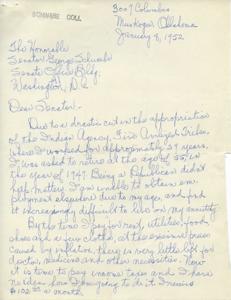 SCHWABE COLL
3007 Columbus
Muskogee, Oklahoma
January 8, 1952
The Honorable
Senator George Schwabe
Senate Office Bldg.
Washington, D.C.
Dear Senator:
Due to a drastic cut in the appropriation
of the Indian Agency, Five Civilized Tribes,
where I worked for approximately 29 years,
I was asked to retire at the age of 55, in
the year of 1947. Being a Republican didn't
help matters. I am unable to obtain em-
ployment elsewhere due to my age, and find
it increasingly difficult to live on my annuity.
By the time I pay for rent, utilities, food,
shoes and a few clothes, at the excessive prices
caused by inflation, there is very little left for
doctor, medicine and other necessities. Now
it is time to pay income taxes and I have
no idea how I am going to do it. I receive
$102.00 a month.